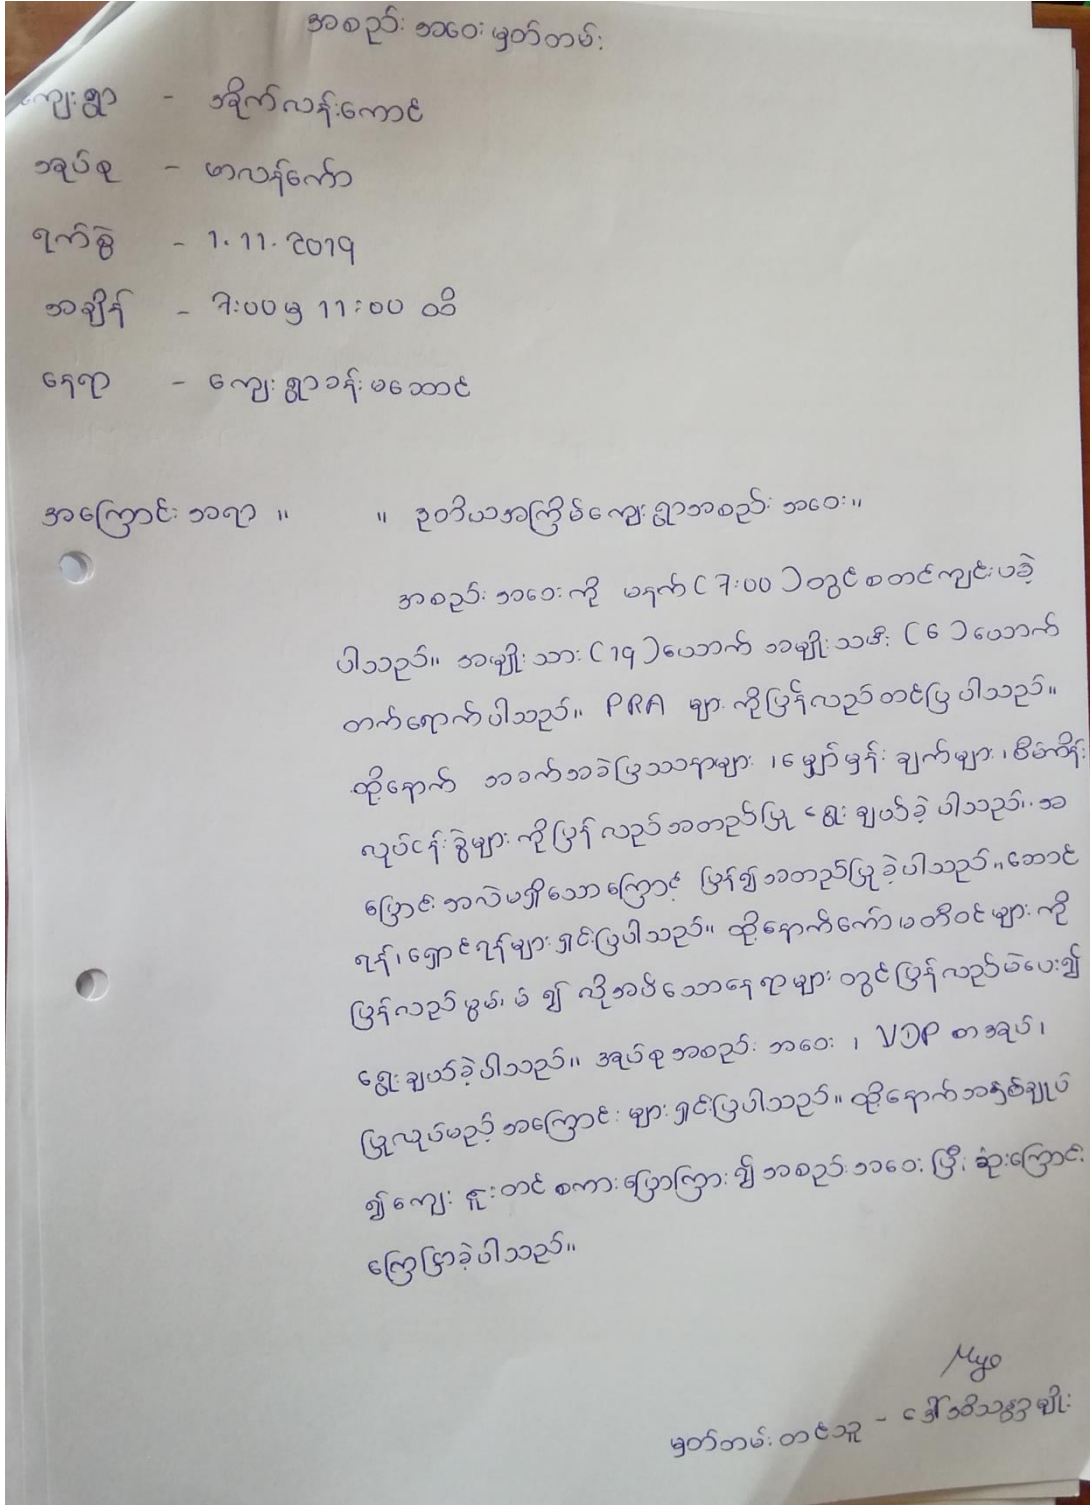 အစည်းအဝေးမှတ်တမ်း
ကျေးရွာ - အိုက်လန်းကောင်
အုပ်စု - မာလန်ကော်
ရက်စွဲ - 1.11.2019
အချိန် - 7:00 မှ 11:00 ထိ
နေရာ - ကျေးရွာခန်းမဆောင်
အကြောင်းအရာ ။ ။ ဒုတိယအကြိမ်ကျေးရွာအစည်းအဝေး။
အစည်းအဝေးကို မနက် (7:00) တွင်စတင်ကျင်းပခဲ့
ပါသည်။ အမျိုးသား (19) ယောက် အမျိုးသမီး (6) ယောက်
တက်ရောက်ပါသည်။ PRA များကိုပြန်လည်တင်ပြပါသည်။
ထို့နောက် အခက်အခဲပြဿနာများ ၊ မျှော်မှန်းချက်များ ၊ စီမံကိန်း
လုပ်ငန်းခွဲများကိုပြန်လည်အတည်ပြု ရွေးချယ်ခဲ့ပါသည်။ အ
ပြောင်းအလဲမရှိသောကြောင့် ပြန်၍အတည်ပြုခဲ့ပါသည်။ ဆောင်
ရန် ၊ ရှောင်ရန်များရှင်းပြပါသည်။ ထို့နောက်ကော်မတီဝင်များကို
ပြန်လည်မွမ်းမံ၍ လိုအပ်သောနေရာများတွင်ပြန်လည်မဲပေး၍
ရွေးချယ်ခဲ့ပါသည်။ အုပ်စုအစည်းအဝေး ၊ VDP စာအုပ် ၊
ပြုလုပ်မည့်အကြောင်းများရှင်းပြပါသည်။ ထို့နောက်အနှစ်ချုပ်
၍ကျေးဇူးတင်စကားပြောကြား၍အစည်းအဝေးပြီးဆုံးကြောင်း
ကြေငြာခဲ့ပါသည်။
Myo
မှတ်တမ်းတင်သူ - ဒေါ်အိသန္တာမျိုး